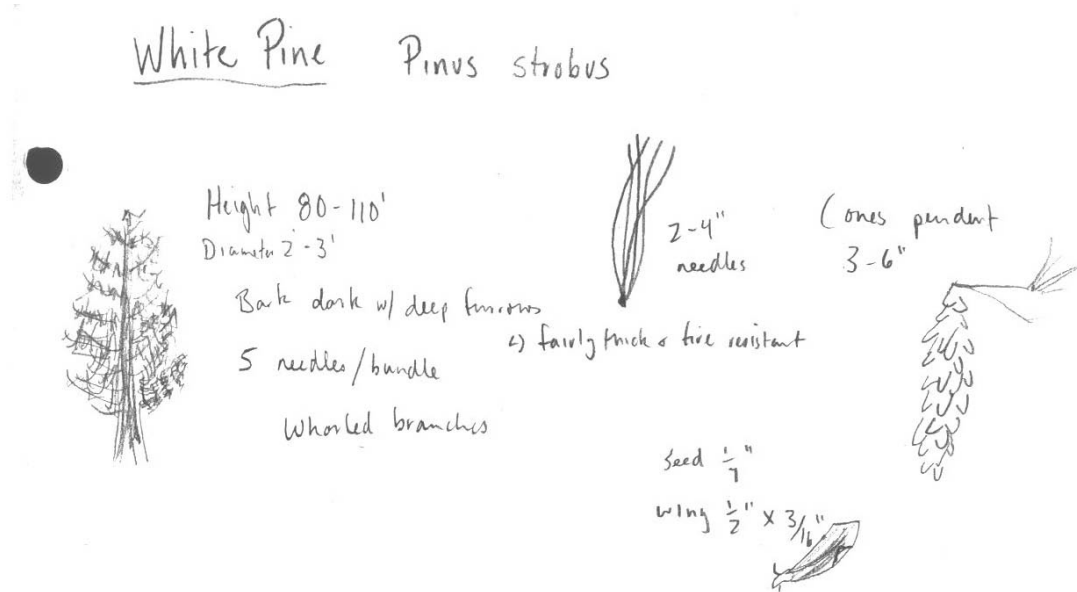 White Pine Pinus strobus
Height 80-110'
Diameter 2'-3'
Bark dark w/ deep furrows
↳ fairly thick & fire resistant
5 needles/bundle
Whorled branches
2-4"
needles
Cones pendent
3-6"
Seed 1/7"
wing 1/2" x 3/16"